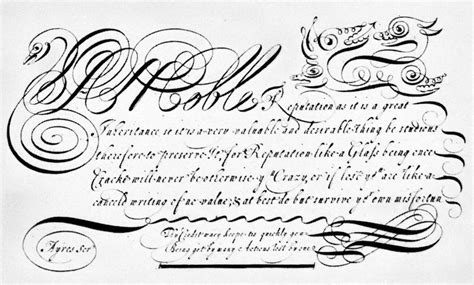 A Noble Reputation as it is a great
Inheritance so it is a very valuable and desirable thing be studious
therefore to preserve It, for Reputation like a Glass being once
Crackt will never be otherwise yn Crazy, or if lost yu are like a
canceld writing of no value, & at best do but survive yr own misfortun
Thy Credit wary keepe tis quickly gon
Being got by many Actions lost by one
Ayres Scr